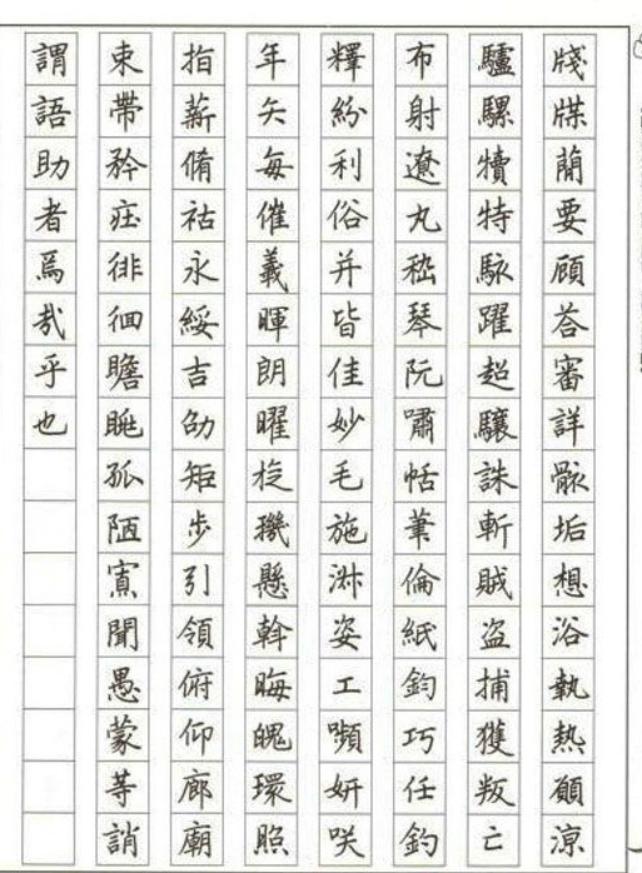 牋牒蕳要顧荅審詳骸垢想浴執熱願涼
驢騾犢特駭躍超驤誅斬賊盗捕獲叛亡
布射遼丸嵇琴阮嘯恬筆倫紙鈞巧任釣
釋紛利俗并皆佳妙毛施淑姿工嚬妍咲
年矢每催羲暉朗曜旋璣懸斡晦魄環照
指薪脩祜永綏吉劭矩步引領俯仰廊廟
束帶矜莊徘徊瞻眺孤陋寡聞愚蒙等誚
謂語助者焉哉乎也